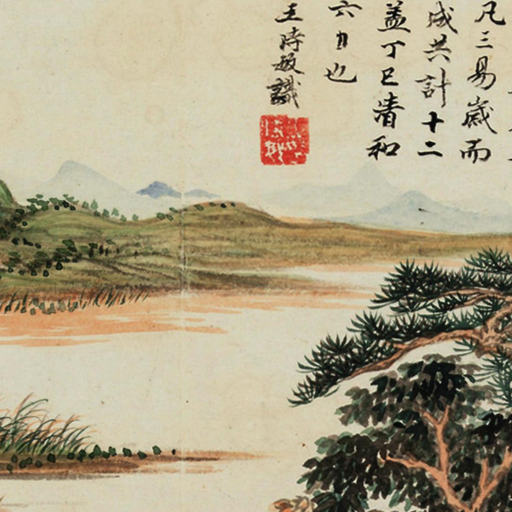 凡三易歲而
成共計十二
蓋丁巳清和
六日也
王時敏識